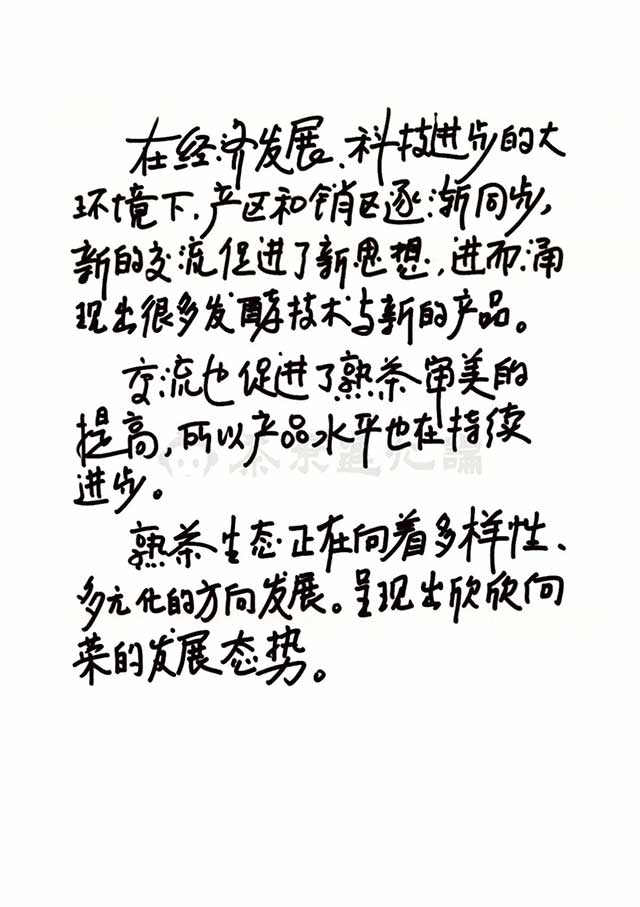 在经济发展、科技进步的大
环境下，产区和销区逐渐同步，
新的交流促进了新思想，进而涌
现出很多发酵技术与新的产品。
交流也促进了熟茶审美的
提高，所以产品水平也在持续
进步。
熟茶生态正在向着多样性、
多元化的方向发展。呈现出欣欣向
荣的发展态势。